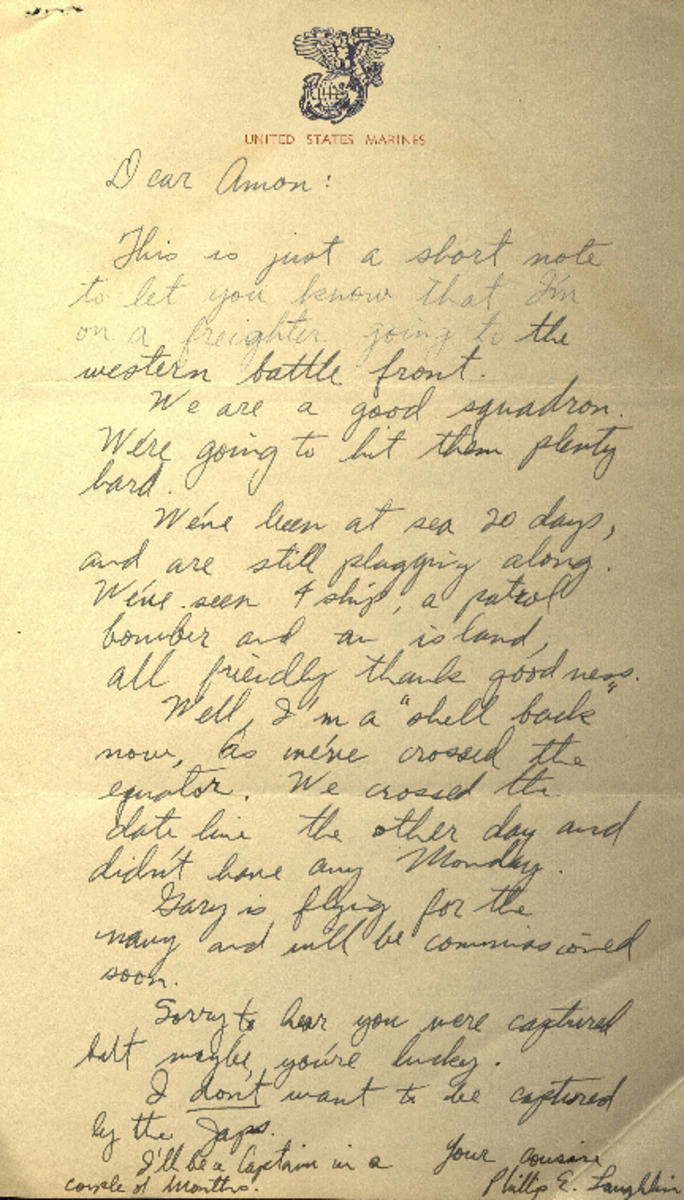 UNITED STATES MARINES
Dear Amon:
This is just a short note
to let you know that I'm
on a freighter going to the
western battle front.
We are a good squadron.
We're going to hit them plenty
hard.
We've been at sea 20 days,
and are still plugging along.
We've seen 4 ship, a patrol
bomber and an island,
all friendly thank goodness.
Well, I'm a "shell back"
now, as we've crossed the
equator. We crossed the
date line the other day and
didn't have any Monday.
Gary is flying for the
navy and will be commissioned
soon.
Sorry to hear you were captured
but maybe you're lucky.
I don't want to be captured
by the Japs.
I'll be a Captain in a
couple of months.
Your cousin
Phillip E. Laughlin